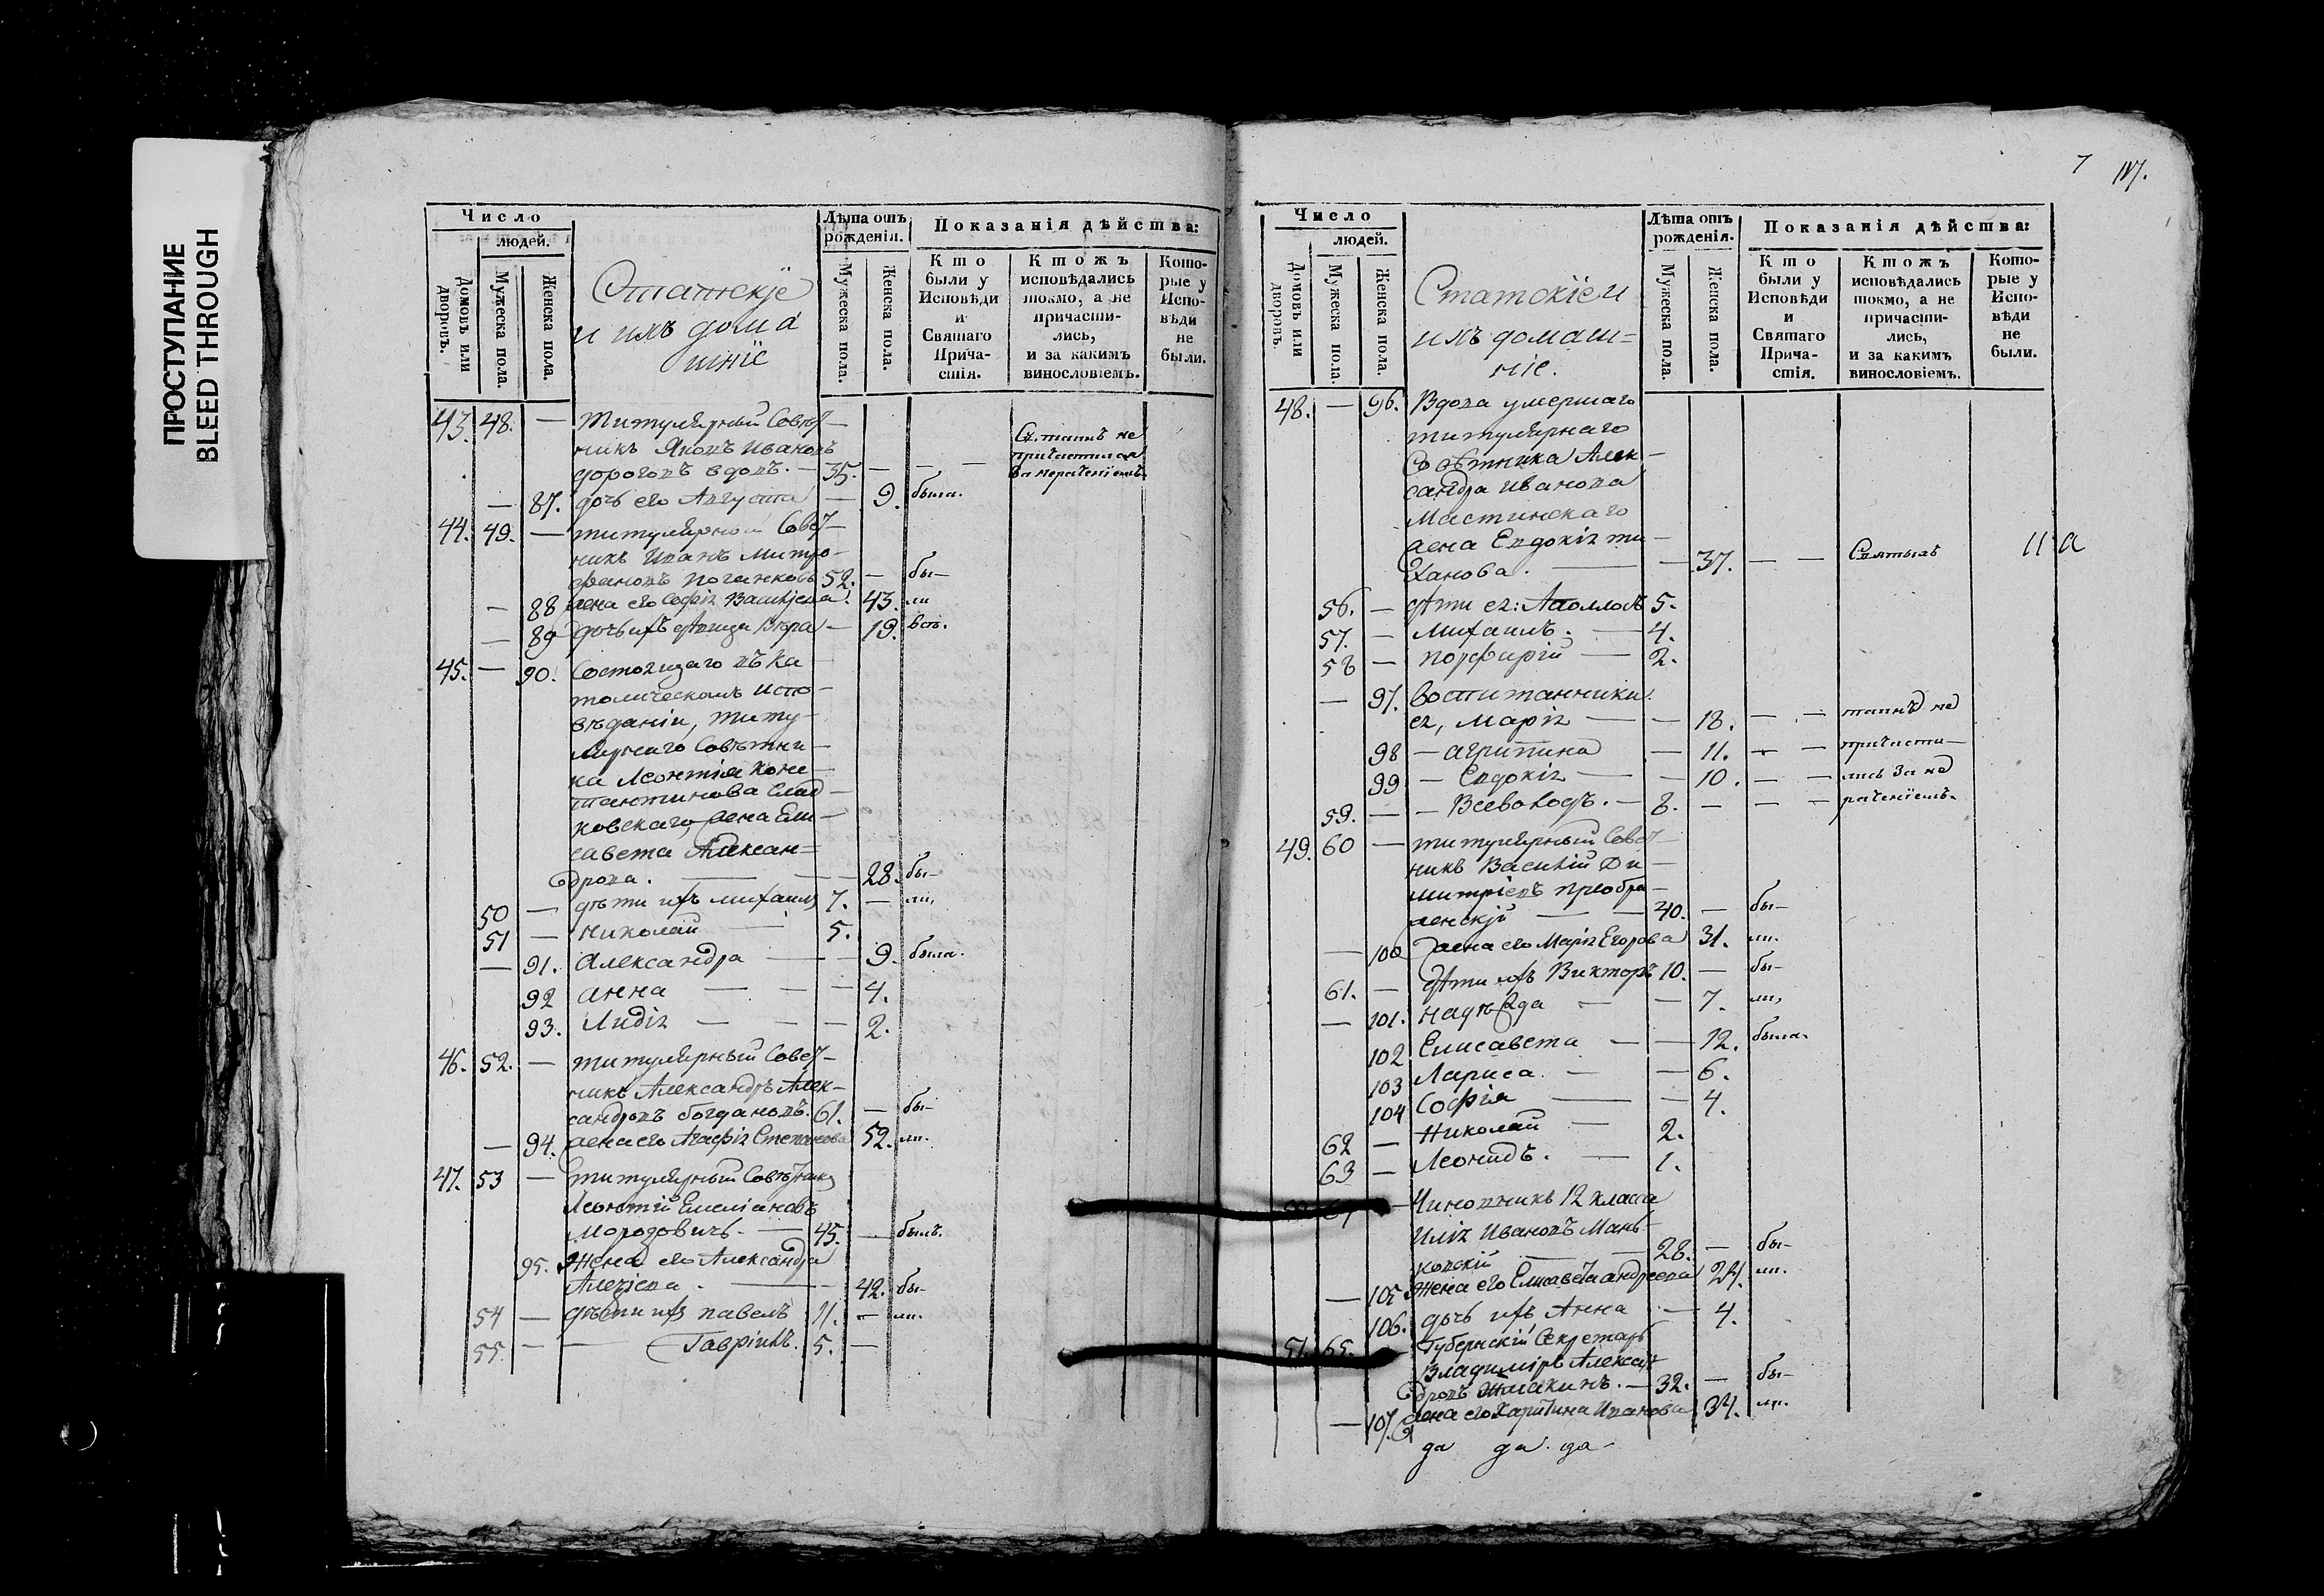 ПРОСТУПАНИЕ
BLEED THROUGH
Число
людей.
Домовъ или дворовъ.
Мужеска пола.
Женска пола.
Статскіе
и ихъ дома
шніе
Лѣта отъ рожденія.
Мужеска пола.
Женска пола.
Показанія дѣйства:
Кто были у Исповѣди и Святаго Прича-стія.
Ктожъ исповѣдались токмо, а не причасти-лись, и за какимъ винословіемъ.
Кото-рые у Испо-вѣди не были.
43. 48. — Титулярный Совѣт-
никъ Яковъ Ивановъ Св. таинъ не
дороговъ вдовъ. — 35. — — — причастился за нераченіемъ
— 87. дочь его Августа — 9. была.
44. 49. — титулярной Совет-
никъ Иванъ Митро-
фановъ Поганковъ 52. — бы-
— 88 жена его Софія Васильева 43. ли
— 89 дочь ихъ дѣвица Вѣра — 19. всѣ.
45. — 90. Состоящаго въ Ка
толическомъ испо-
вѣданіи, титу-
лярнаго Совѣтни-
ка Леонтія Конс-
тантинова
ковскаго, жена Ели-
савета Алексан=
дрова. — — 28. бы-
50 — дѣти ихъ Михаилъ 7. — ли,
51 — Николай — 5.
— 91. Александра — — 9. была.
92 анна — — — 4.
93. Лидія — — — 2.
46. 52. — титулярный Совет-
никъ Александръ Алек-
сандровъ Богдановъ. 61. — бы-
— 94. жена его Агафія Степанова 52. ли.
47. 53 — титулярный Совѣтникъ
Леонтій Емеліановъ
Морозовичь. — 45. — былъ.
95. Жена его Александра
Алексіева. — 42. бы-
54 — дѣти ихъ павелъ 11. — ли.
55. — — Гавріилъ. 5. —
7 117.
Число
людей.
Домовъ или дворовъ.
Мужеска пола.
Женска пола.
Статскіе и
ихъ домаш=
ніе.
Лѣта отъ рожденія.
Мужеска пола.
Женска пола.
Показанія дѣйства:
Кто были у Исповѣди и Святаго Прича-стія.
Ктожъ исповѣдались токмо, а не причасти-лись, и за какимъ винословіемъ.
Кото-рые у Испо-вѣди не были.
48. — 96. Вдова умершаго
титулярнаго
Совѣтника Алек-
сандра Иванова
Мастинскаго
жена Евдокія ти-
ханова. — — 37. — — Святыхъ 11 а
56. — дѣти ея: Аполлонъ 5.
57. — Михаилъ. — 4.
58 — порфирій — 2.
— 97. воспитанники
ея, Марія — — 18. — — таинъ не
98 — агрипина — 11. — — причасти-
99 — Евдокія — — 10. — — лись за не
59. — — Всеволодъ. — 8. — — — раченіемъ.
49. 60 — титулярный Совет-
никъ Василій Ди-
митріевъ Преобра-
женскій — — 40. — бы-
— 100 жена его Марія Егорова 31. ли.
61. — дѣти ихъ Викторъ 10. — бы-
— 101. надѣжда — — 7. ли,
102 Елисавета — — 12. была.
103 Лариса. — — 6.
104 Софія — — 4.
62 — Николай — 2.
63 — Леонидъ. — 1.
— Чиновникъ 12 класса
Илія Ивановъ Мань-
ковскій — — 28. — бы-
— 105 Жена его Елисавета андреева 24. ли.
106. дочь ихъ Анна — 4.
51. 65. — Губернскій Секретарь
Владиміръ Алексан-
дровъ Жмакинъ. — 32. — бы-
— 107. жена его Харитина Иванова 34. ли.
да да да